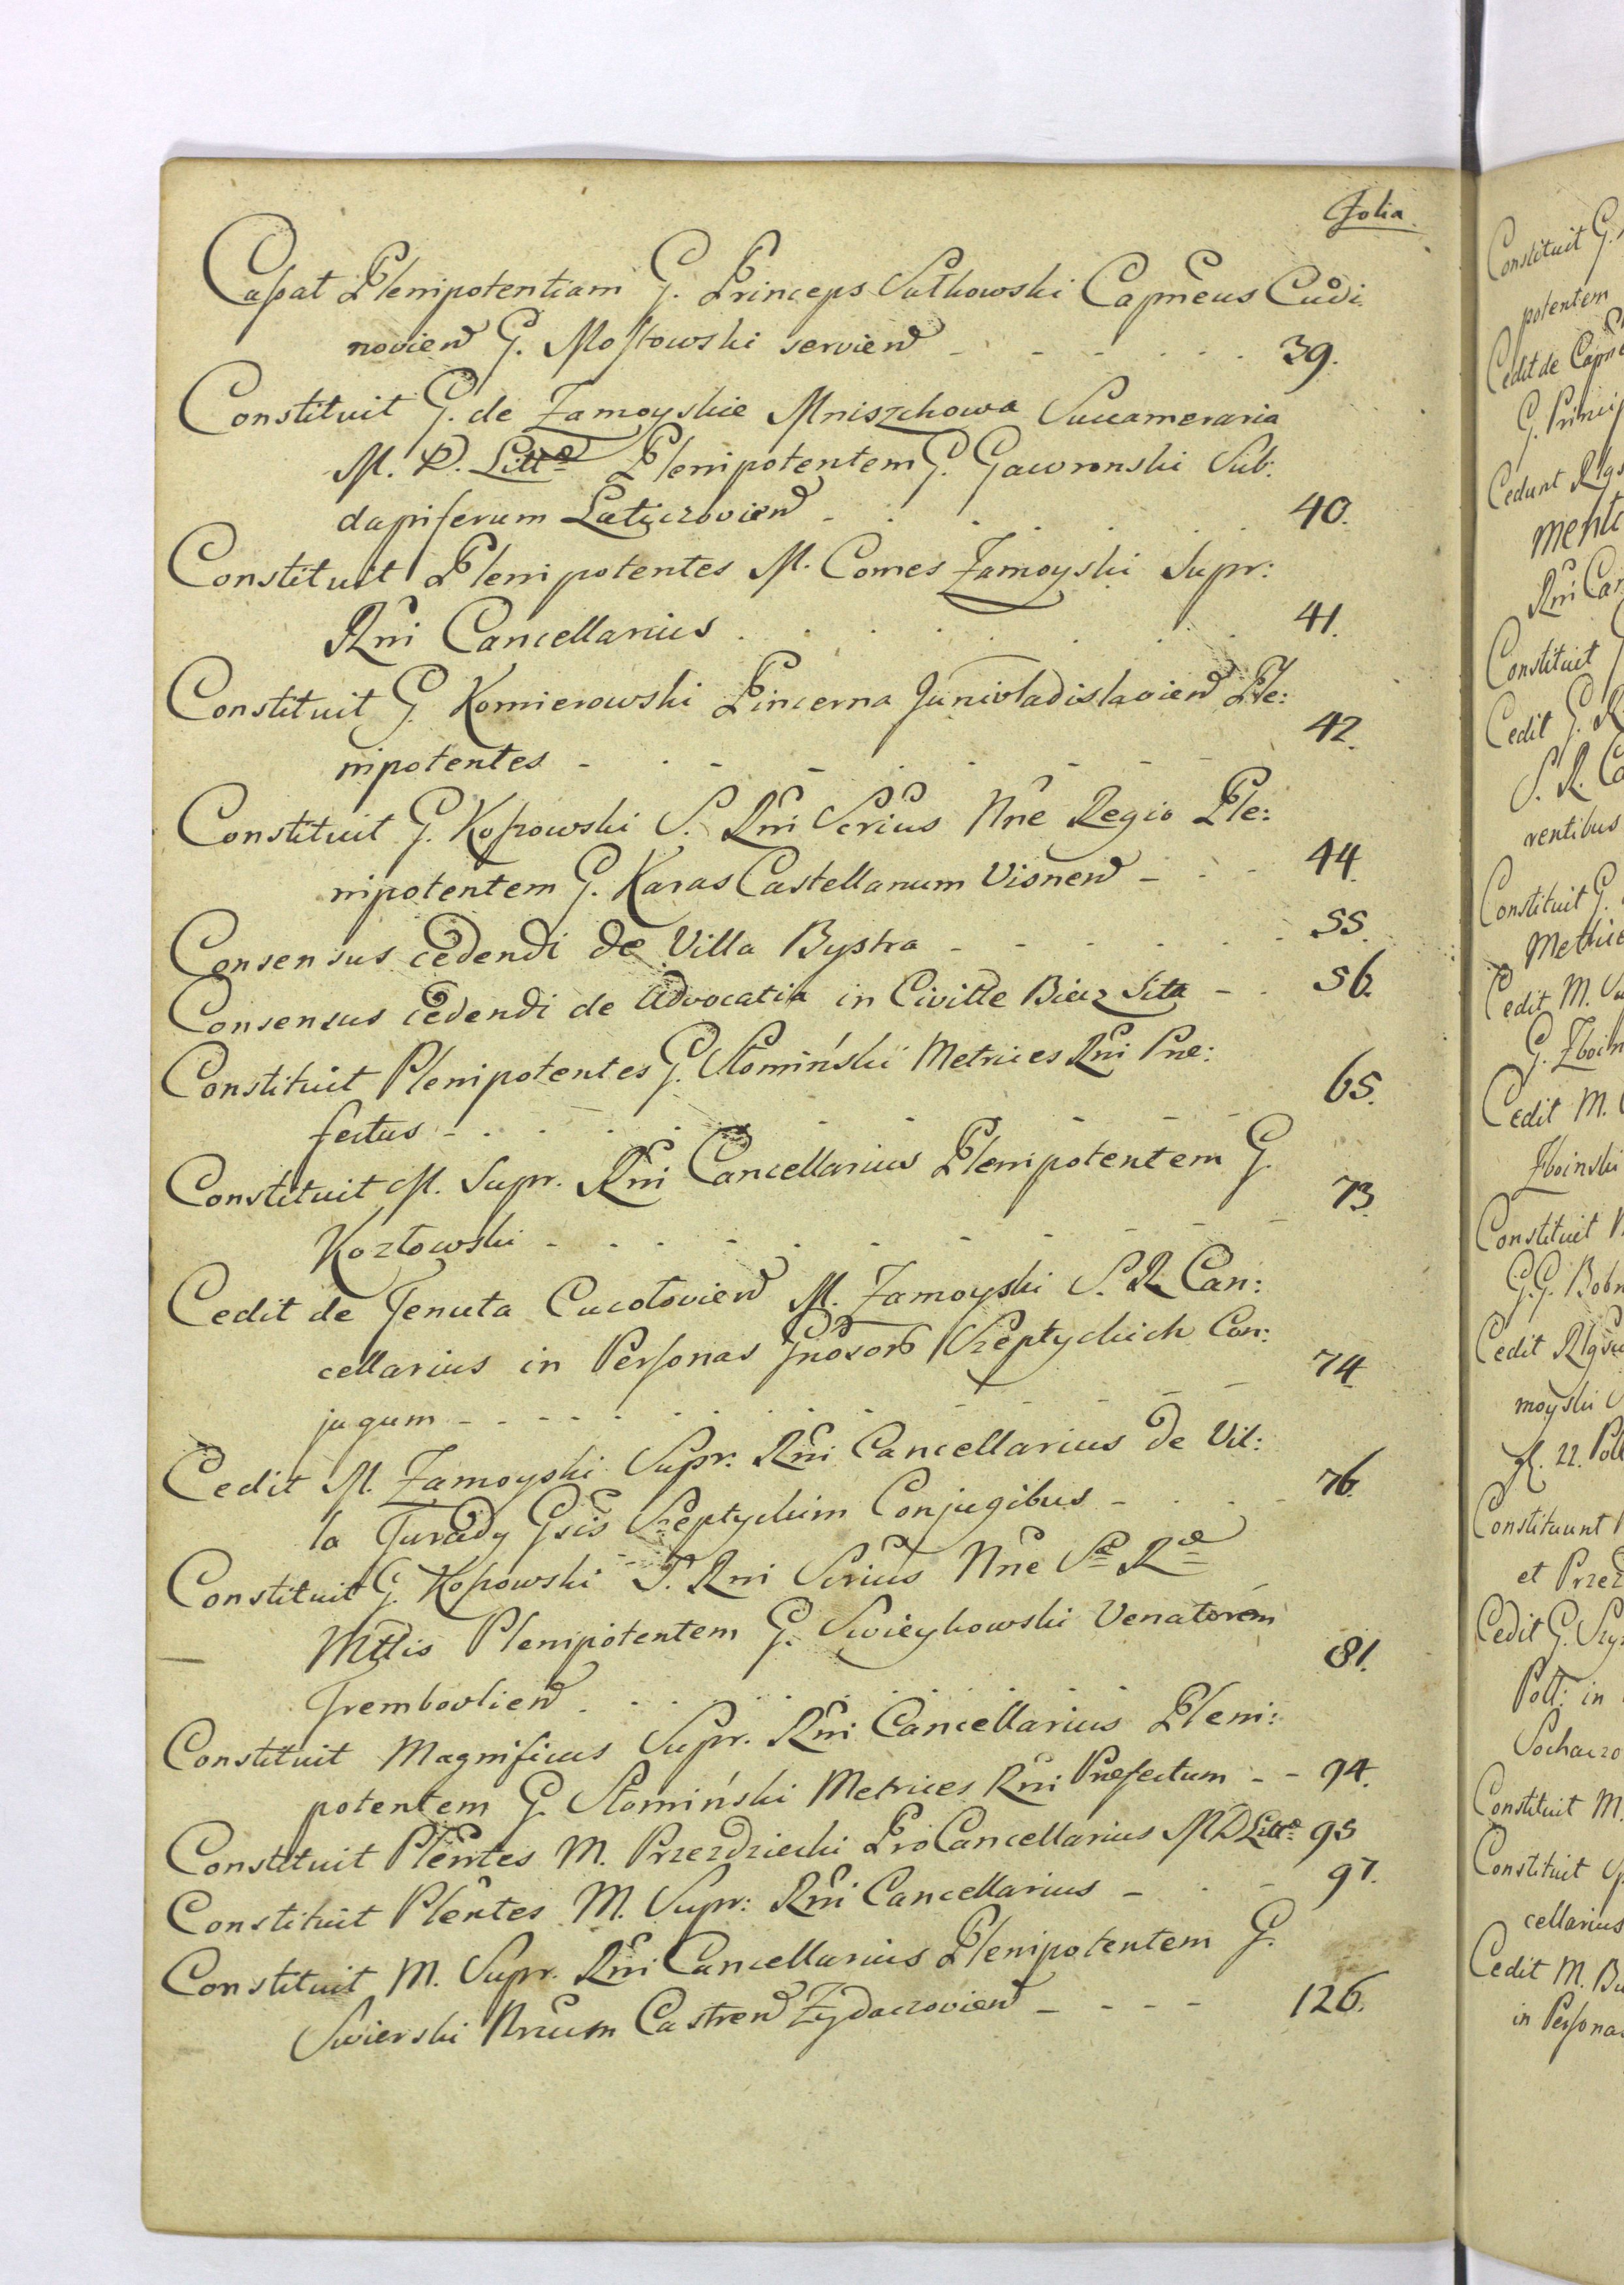 Folia
Cassat Plenipotentiam G. Princeps Sułkowski Capneus Cudi
novien G. Mostowski servien - - - - - 39.
Constituit G. de Zamoyskie Mniszchowa Succameraria
M. D. Littæ Plenipotentem G. Gawronski Sub:
dapiferum Latyczovien - . . . . 40.
Constituit Plenipotentes M. Comes Zamoyski Supr:
Rni Cancellarius . . . . . . 41.
Constituit G. Komierowski Pincerna Junivladislavien Ple:
nipotentes - . - - . . - - - 42.
Constituit G. Kossowski S. Rni Scrius Nne Regio Ple:
nipotentem G. Karas Castellanum Visnen - . - 44.
Consensus cedendi de Villa Bystra - - - - - - 55.
Consensus cedendi de Advocatia in Civitte Biecz Sita - . 56.
Constituit Plenipotentes G. Słomiński Metrices Rni Præ:
fectus - . . . . . - - - - 65.
Constituit M. Supr. Rni Cancellarius Plenipotentem G.
Kozłowski - . . . . . - - - - 73.
Cedit de Tenuta Cucołovien M. Zamoyski S. R. Can:
cellarius in Personas Gnosorb Szeptyckich Con:
jugum - - - - . . . - - - - 74.
Cedit M. Zamoyski Supr: Rni Cancellarius de Vil:
la Turady Gsis Szeptyckim Conjugibus - . . . - 76.
Constituit G. Kossowski S. Rni Scrius Nne Sæ Ræ
Mttis Plenipotentem G. Swieykowski Venatorem
Trembovlien . . . . . . . . 81.
Constituit Magnificus Supr. Rni Cancellarius Pleni:
potentem G. Słomiński Metrices Rni Præfectum - - 94.
Constituit Plentes M. Przezdziecki ProCancellarius M D Littæ 95
Constituit Plentes M. Supr: Rni Cancellarius - . - 97.
Constituit M. Supr. Rni Cancellarius Plenipotentem G.
Swierski Nrium Castren Zydaczovien - - - - 126.
Constituit G.
potentem
Cedit de
G. Princip
Cedunt
Rni Can
Constituit
Cedit G.
S. R. Ca
rentibus
Constituit G.
Cedit M.
G. Zboin
Cedit M.
Zboinski
Constituit
G. G. Bobr
Cedit
moyski
Constituunt
et Przez
Cedit G. Szy
Poll: in
Sochaczo
Constituit M.
Constituit
cellarius
Cedit M. Bu
in Personas